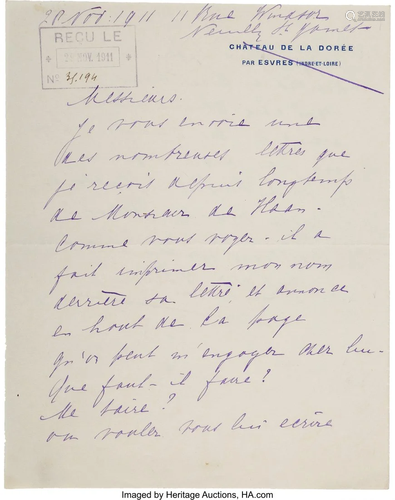 28 Nov. 1911 11 Rue Windsor
Neuilly St James
CHÂTEAU DE LA DORÉE
PAR ESVRES (INDRE-ET-LOIRE)
RECU LE
NOV. 1911
No 31.194
Messieurs.
Je vous envoie une
des nombreuses lettres que
je reçois depuis longtemps
de Monsieur de Haan.
Comme vous voyez - il a
fait imprimer mon nom
derrière sa lettre, et annonce
en haut de la page
qu'on peut m'engager chez lui -
Que faut-il faire?
Me taire?
ou voulez vous lui ecrire
Imaged by Heritage Auctions, HA.com